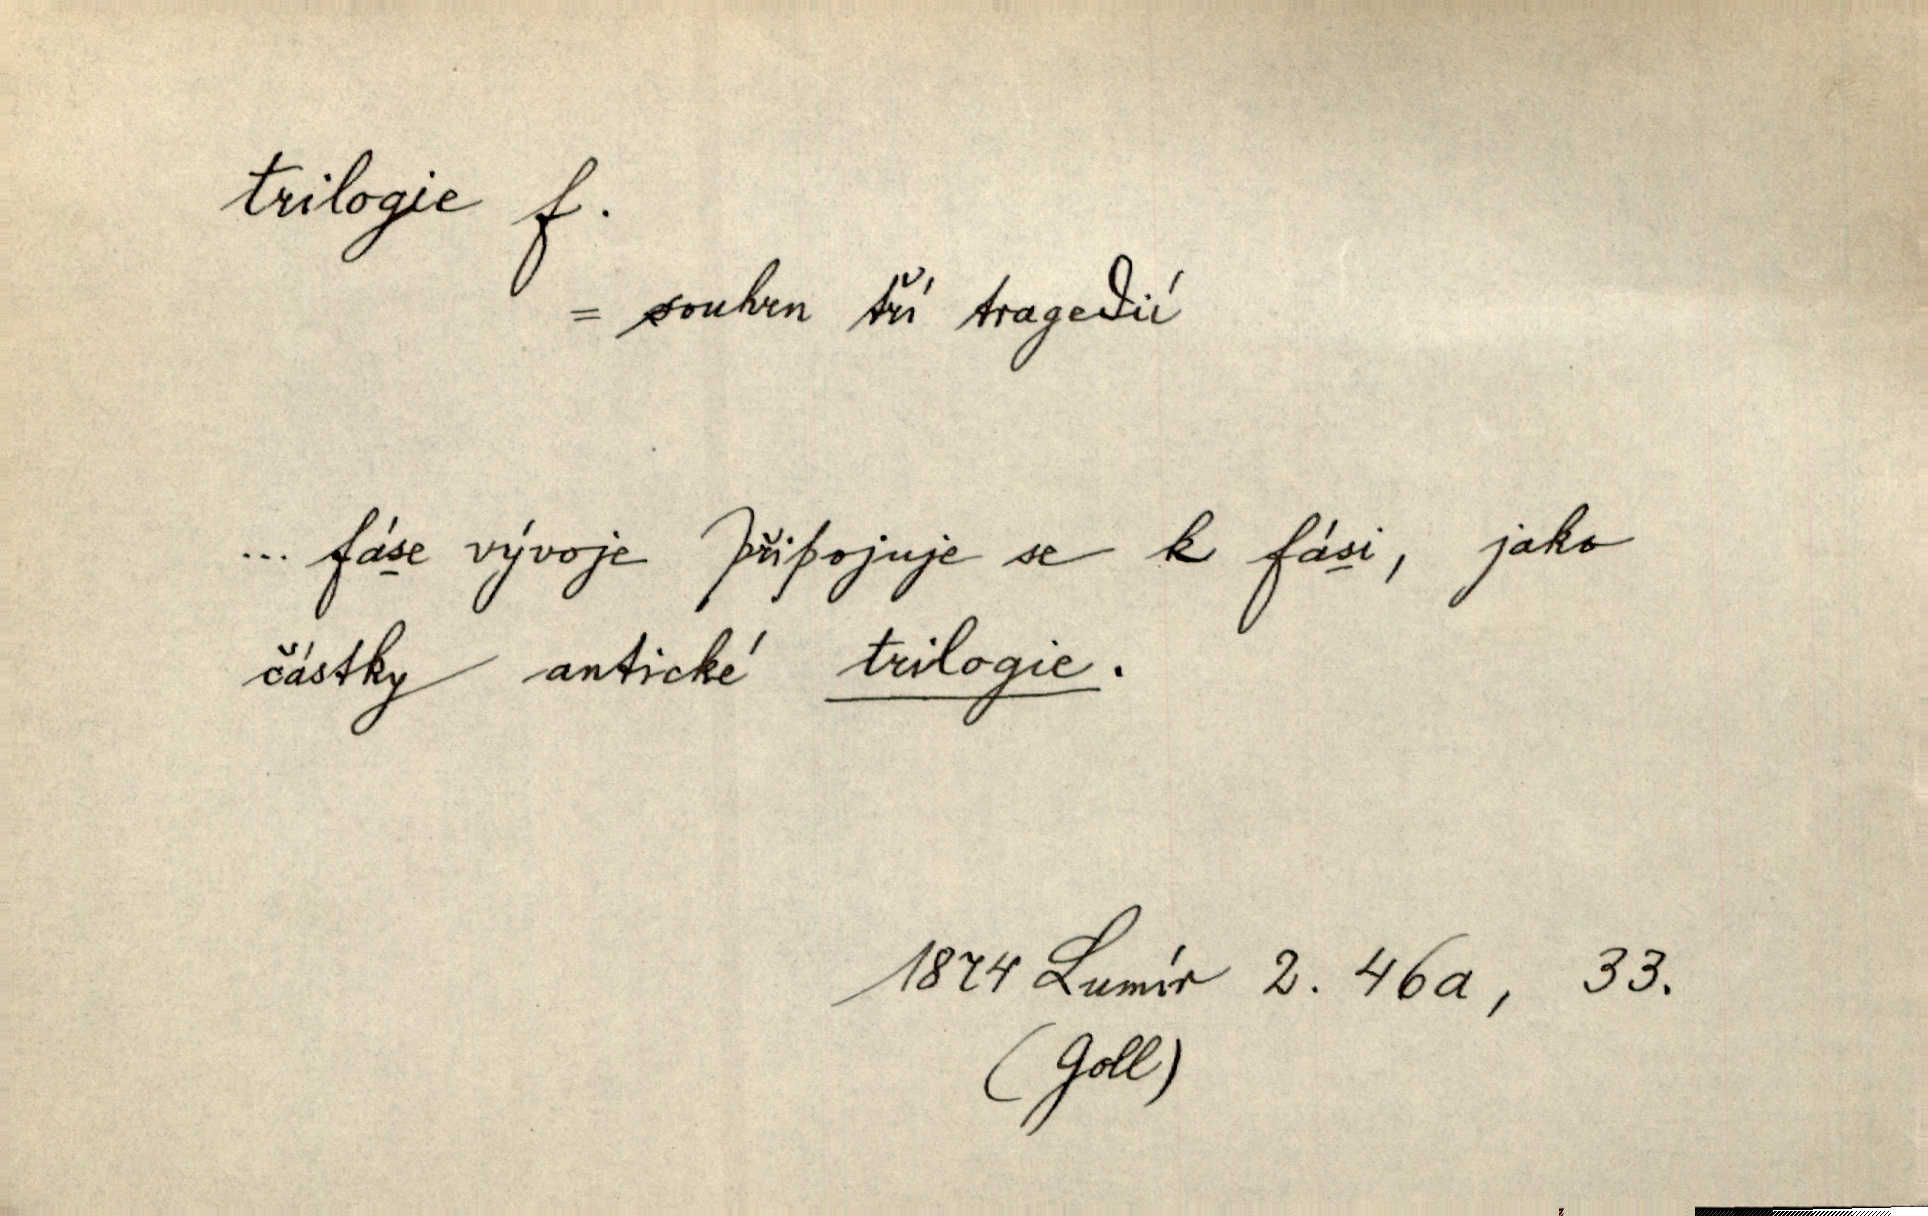 trilogie f.
= souhrn tří tragedií
... fáse vývoje připojuje se k fási, jako
částky antické trilogie.
1874 Lumír 2. 46a, 33.
(Goll)